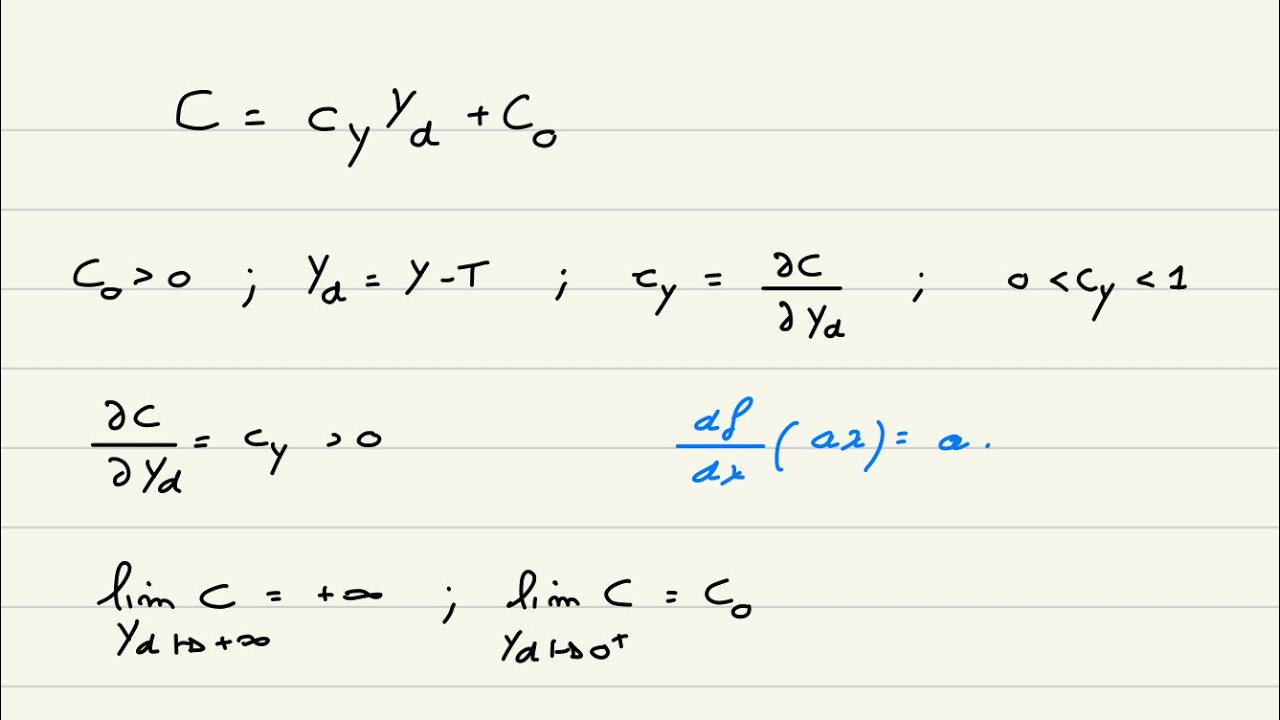 C = c_y Y_d + C_0
C_0 > 0 ; Y_d = Y - T ; c_y = ∂C/∂Y_d ; 0 < c_y < 1
∂C/∂Y_d = c_y > 0 df/dx (ax) = a.
lim_{Y_d ↦ +∞} C = +∞ ; lim_{Y_d ↦ 0⁺} C = C_0